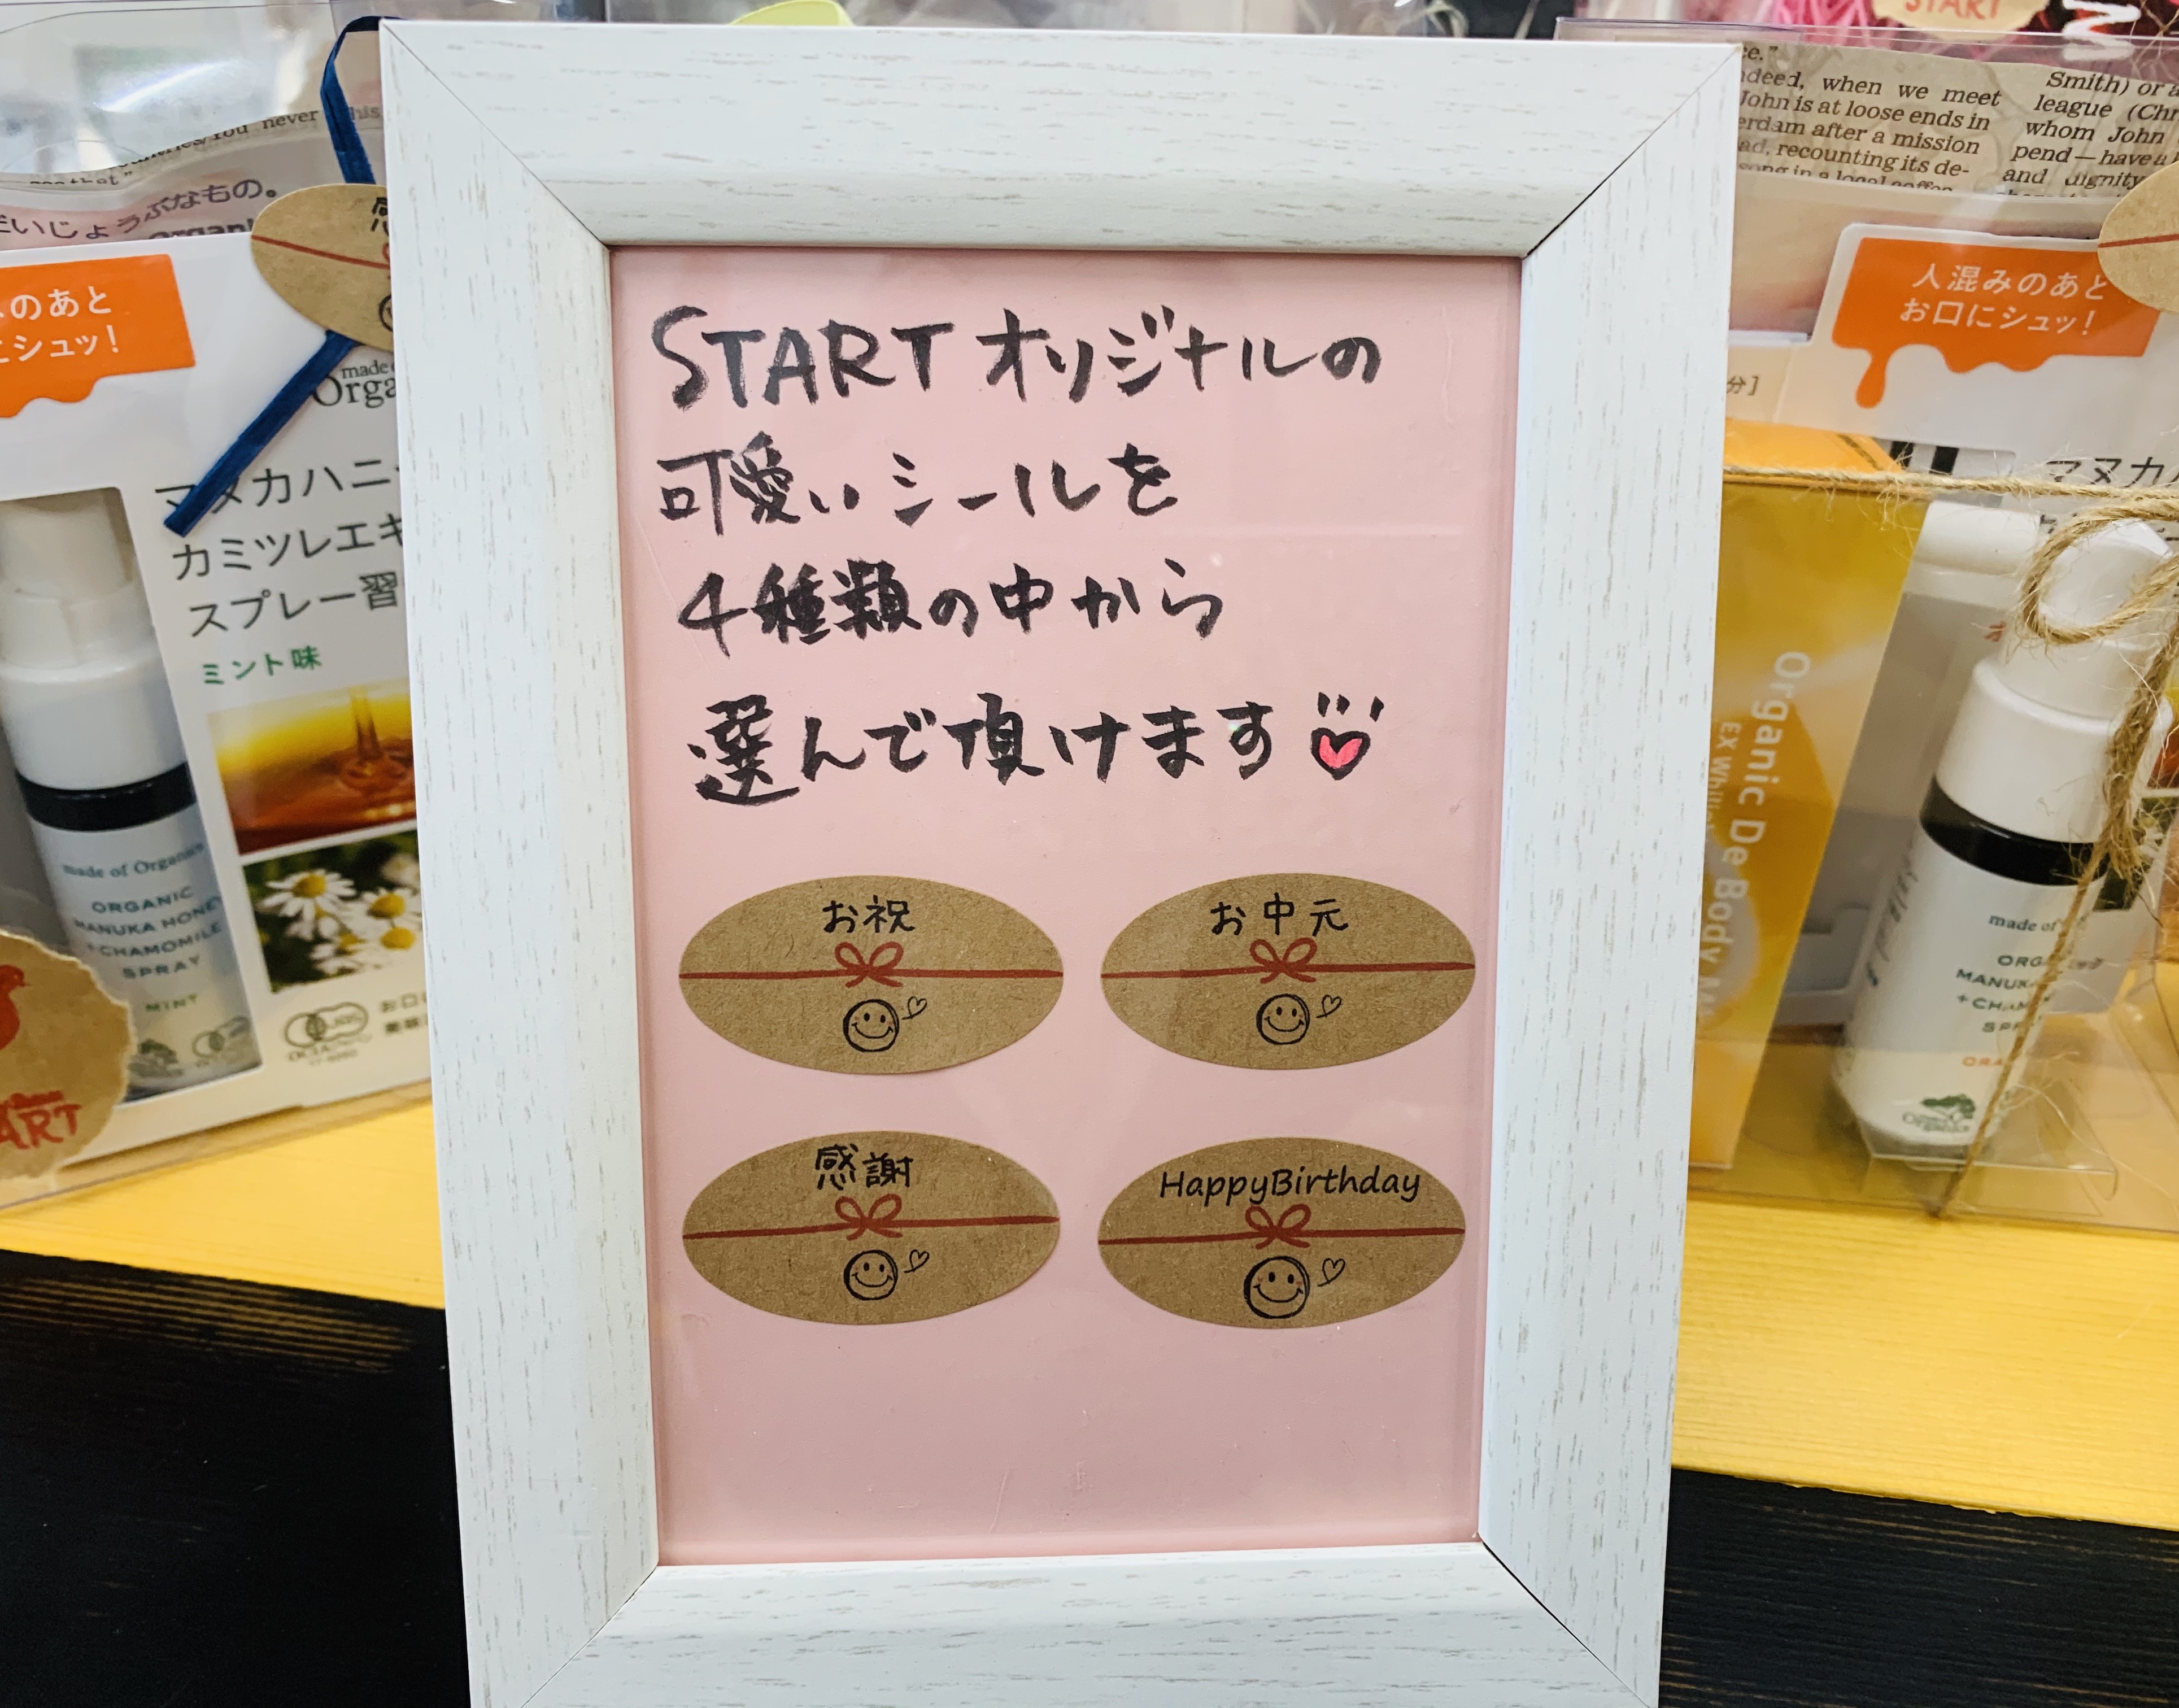 STARTオリジナルの
可愛いシールを
4種類の中から
選んで頂けます
お祝
お中元
感謝
HappyBirthday
だいじょうぶなもの。
のあと
シュッ!
made
マヌカハニ
カミツレエキ
スプレー習
ミント味
made of Organics
ORGANIC
MANUKA HONEY
+CHAMOMILE
SPRAY
MINT
START
indeed, when we meet
John is at loose ends in
after a mission
recounting its de-
Smith) or a
league (Chr
whom John
pend—have a
and dignity
人混みのあと
お口にシュッ!
分]
マヌカ
Organic De Body
made of
SPR